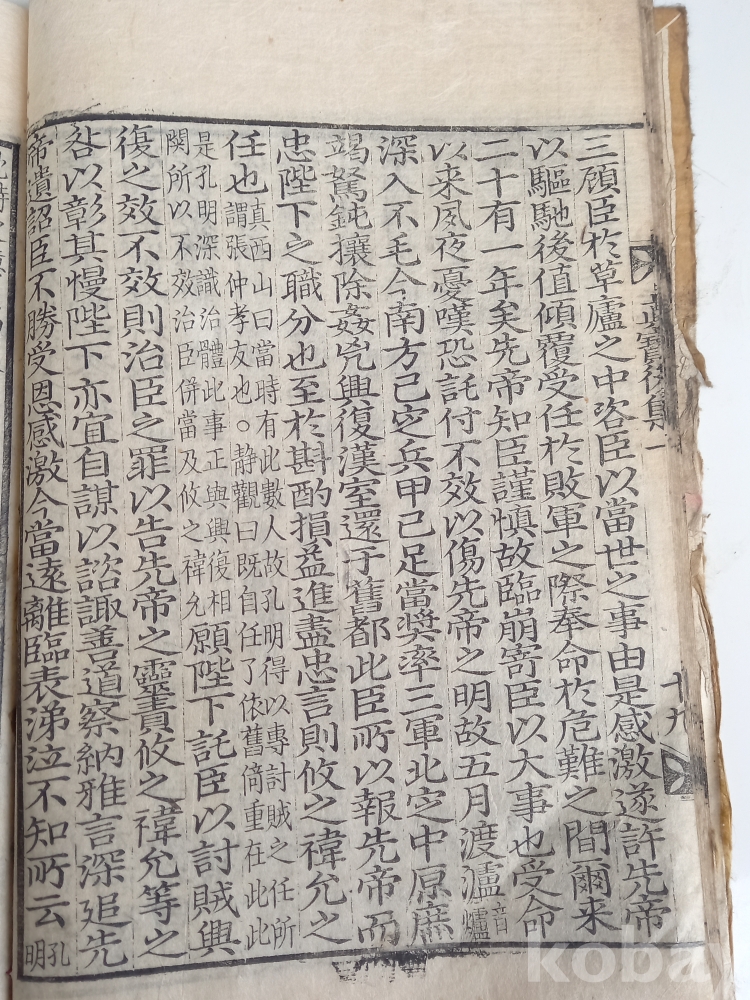 三顧臣於草廬之中咨臣以當世之事由是感激遂許先帝
以驅馳後值傾覆受任於敗軍之際奉命於危難之間爾来
二十有一年矣先帝知臣謹慎故臨崩寄臣以大事也受命
以来夙夜憂嘆恐託付不效以傷先帝之明故五月渡瀘音爐
深入不毛今南方已定兵甲已足當奬率三軍北定中原庶
竭駑鈍攘除姦兇興復漢室還于舊都此臣所以報先帝而
忠陛下之職分也至於斟酌損益進盡忠言則攸之禕允之
任也真西山曰當時有此數人故孔明得以專討賊之任所
謂張仲孝友也○静觀曰既自任了依舊倚重在此此
是孔明深識治體此事正與興復相
関所以不效治臣併當及攸之禕允願陛下託臣以討賊興
復之效不效則治臣之罪以告先帝之靈責攸之禕允等之
咎以彰其慢陛下亦宜自謀以諮諏善道察納雅言深追先
帝遺詔臣不勝受恩感激今當遠離臨表涕泣不知所云孔明
眞寶後集一
十九
kobay